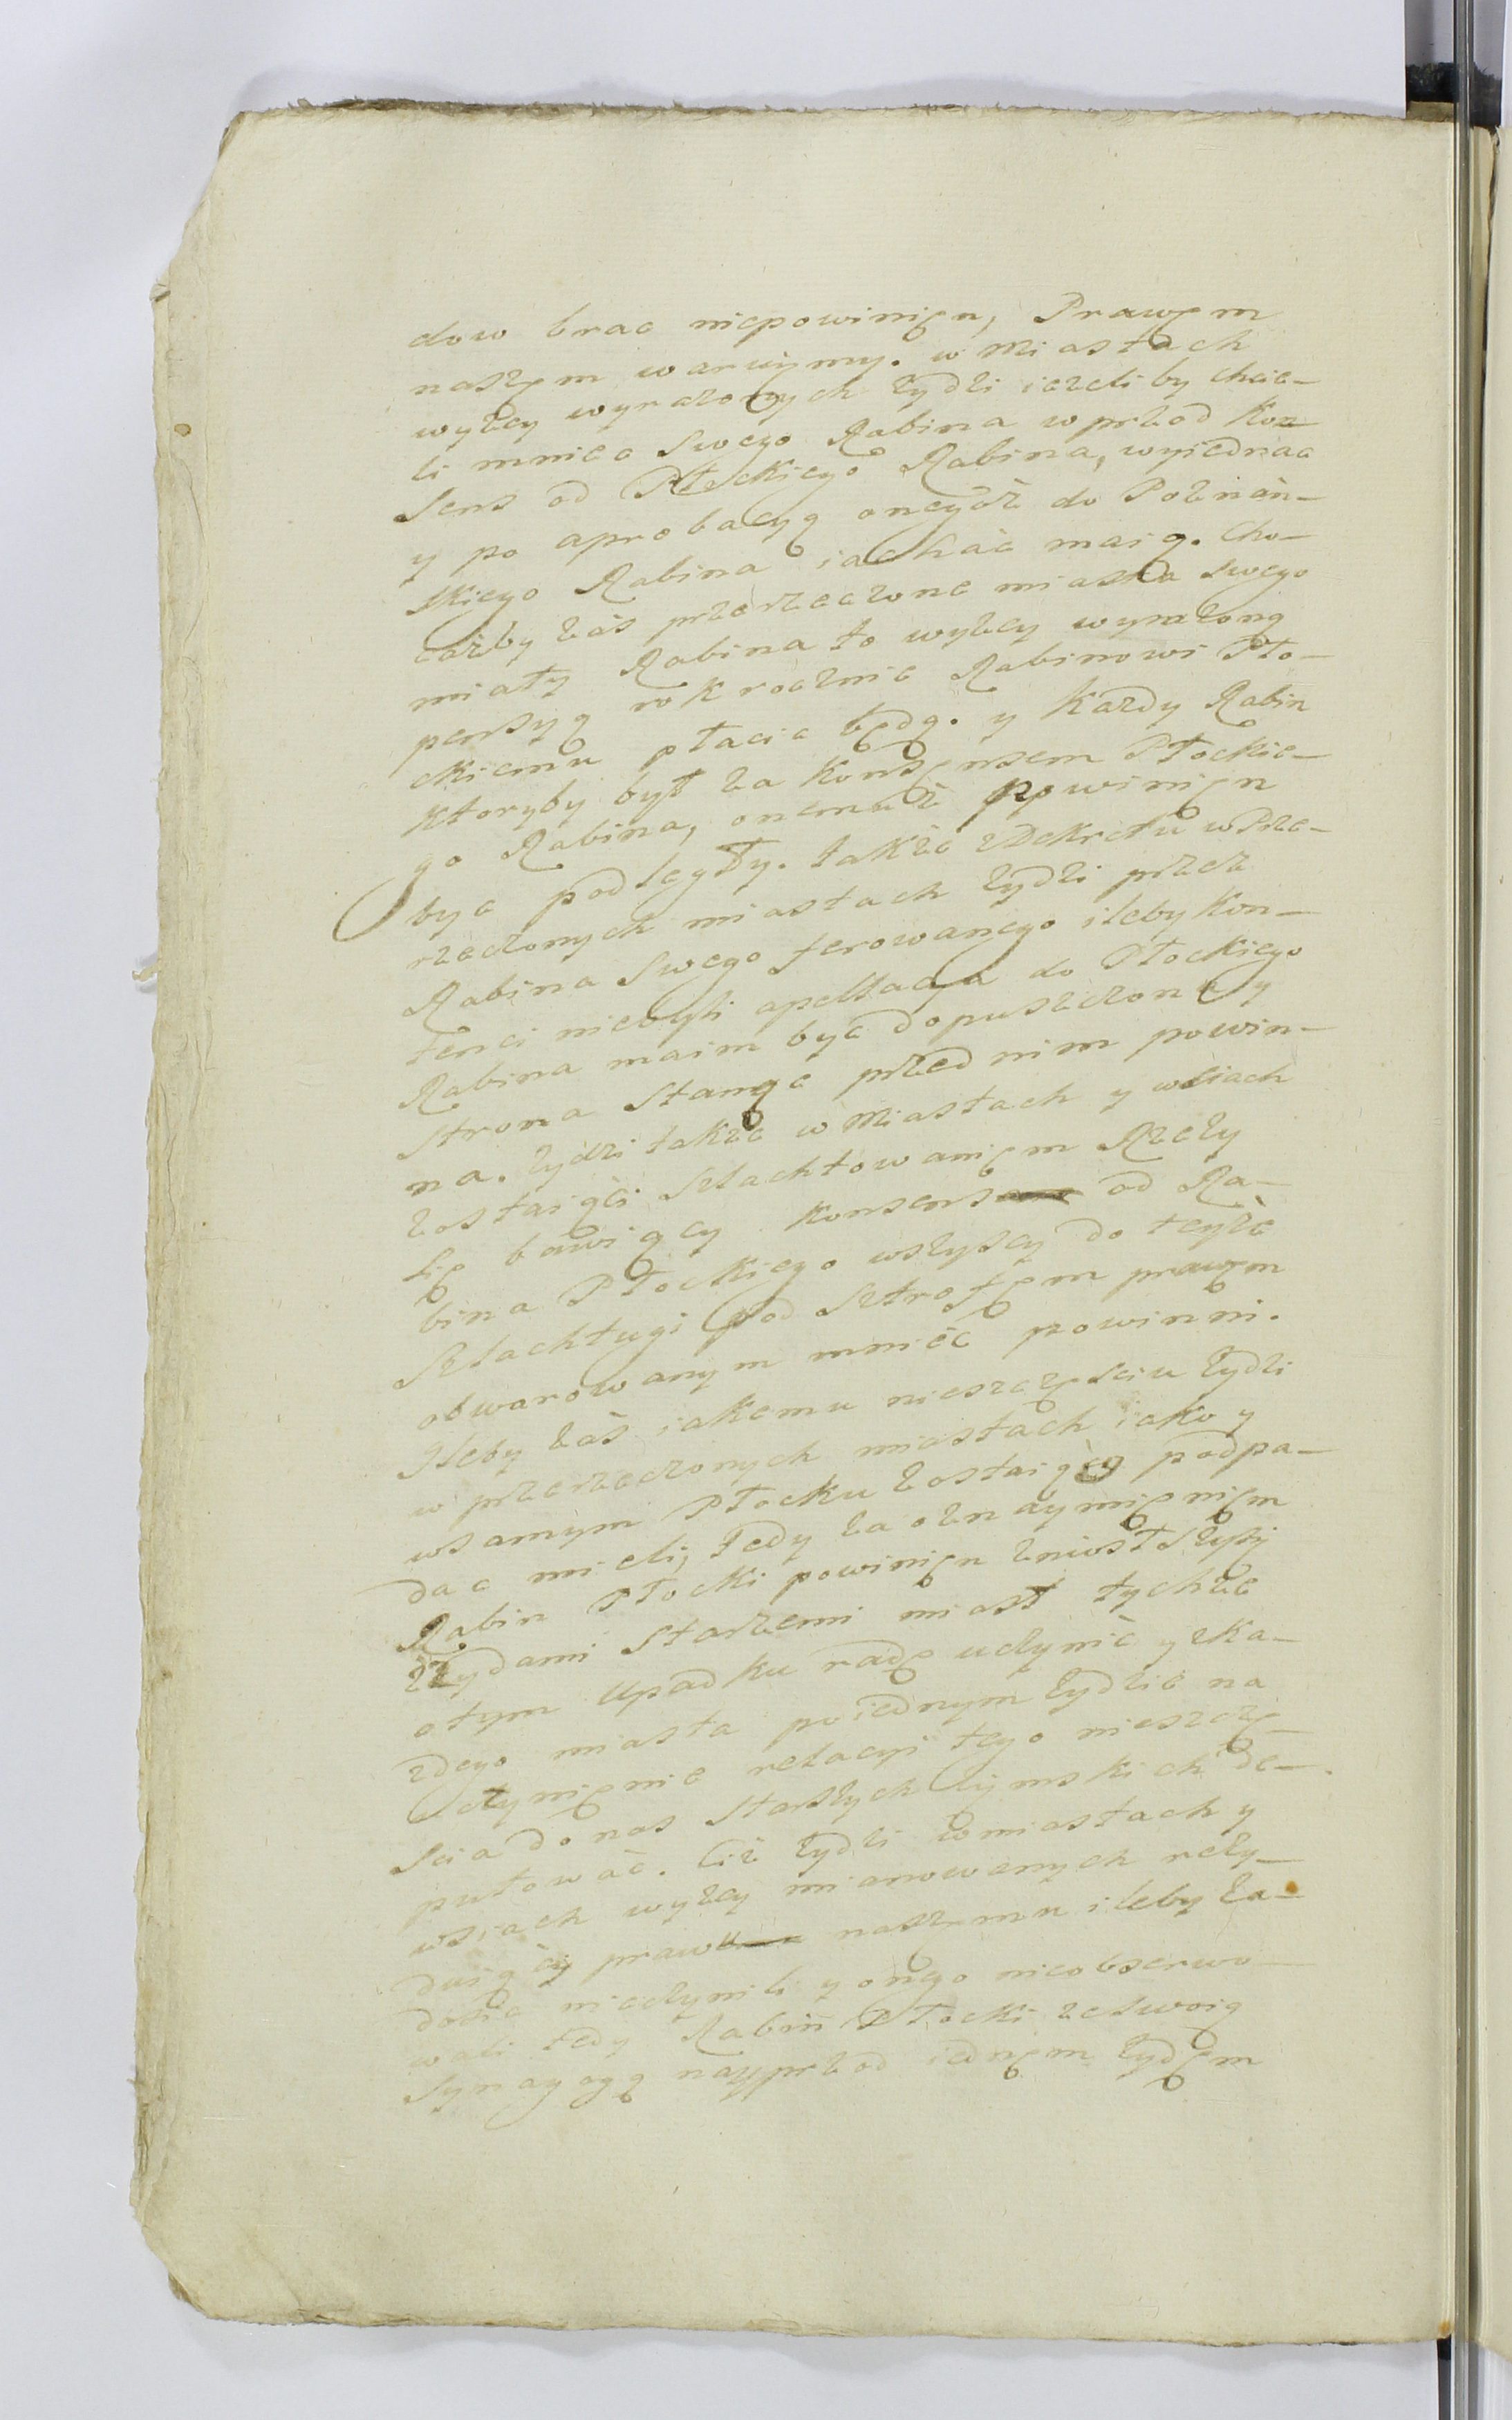 dow brac niepowinięn, Prawęm
naszęm waruiemy. w Miastach
wyżey wyrażonych Żydźi ieżeliby chcie-
li mnieć Swego Rabina wprzod Kon-
Sens od Płockiego Rabina, wyiednac
y po aprobacyą oneyże do Poznań-
skiego Rabina iachać maią. Cho-
ciażby zaś przerzeczone miasta Swego
miały Rabina to wyżey wyrażoną
pensyą rokrocznie Rabinowi Pło-
ckiemu płacic będą. y Każdy Rabin
ktoryby był za Konsęnsem Płockie-
go Rabina, onemuż powinięn
byc podległy. także zDekretu wPrze-
rzeczonych miastach Żydźi przez
Rabina Swego ferowanego ileby Kon-
tenci niebyli apellacya do Płockiego
Rabina maim być dopuszczona y
Strona Stanąc przed nim powin-
na. Żydzi także w Miastach y wśiach
zostaiąci Szlachtowanięm Rzeży
się bawiący Konsens od Ra-
bina Płockiego wszyscy do teyże
Szlachtugi pod Sztrofęm prawęm
obwarowanym mnieć powinni.
Jleby zaś iakemu nieszczęsciu Żydźi
w przerzeczonych miastach iako y
wsamym Płocku zostaiący podpa-
dac mieli, tedy za oznaymięnięm
Rabin Płocki powinięn zniosłszysię
zŻydami Starzemi miast tychże
otym Upadku radę uczynić y zKa-
żdego miasta poiednym Żydźie na
uczynięnie relacyi tego nieszczę-
Scia do nas Starszych Żymskich de-
putować. Ciż Żydźi wmiastach y
wsiach wyżey mianowanych rezy-
duiący prawu naszemu ileby za-
dosic nieczynili y onego nieobserwo-
wali tedy Rabin Płocki zeSwoią
Synagogą nayprzod iednęm Żydęm